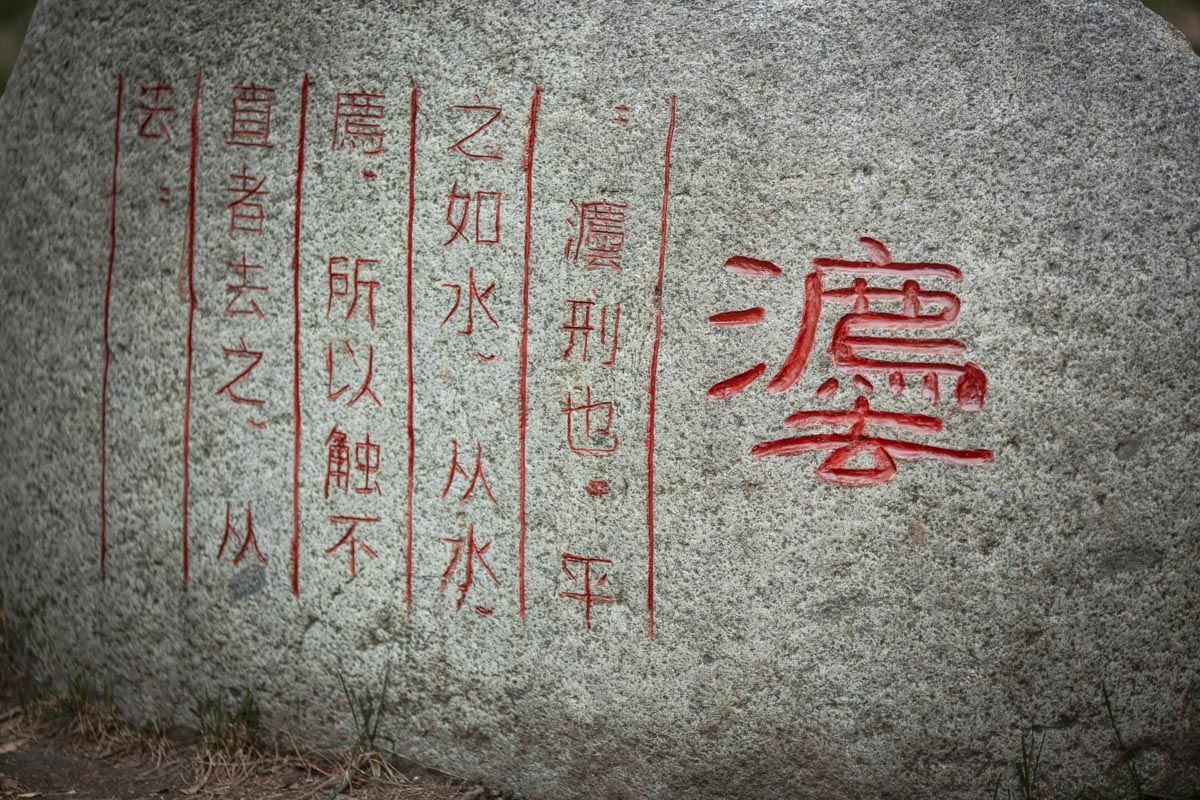 灋
“灋刑也。平
之如水、从水、
廌、所以触不
直者去之、从
去”